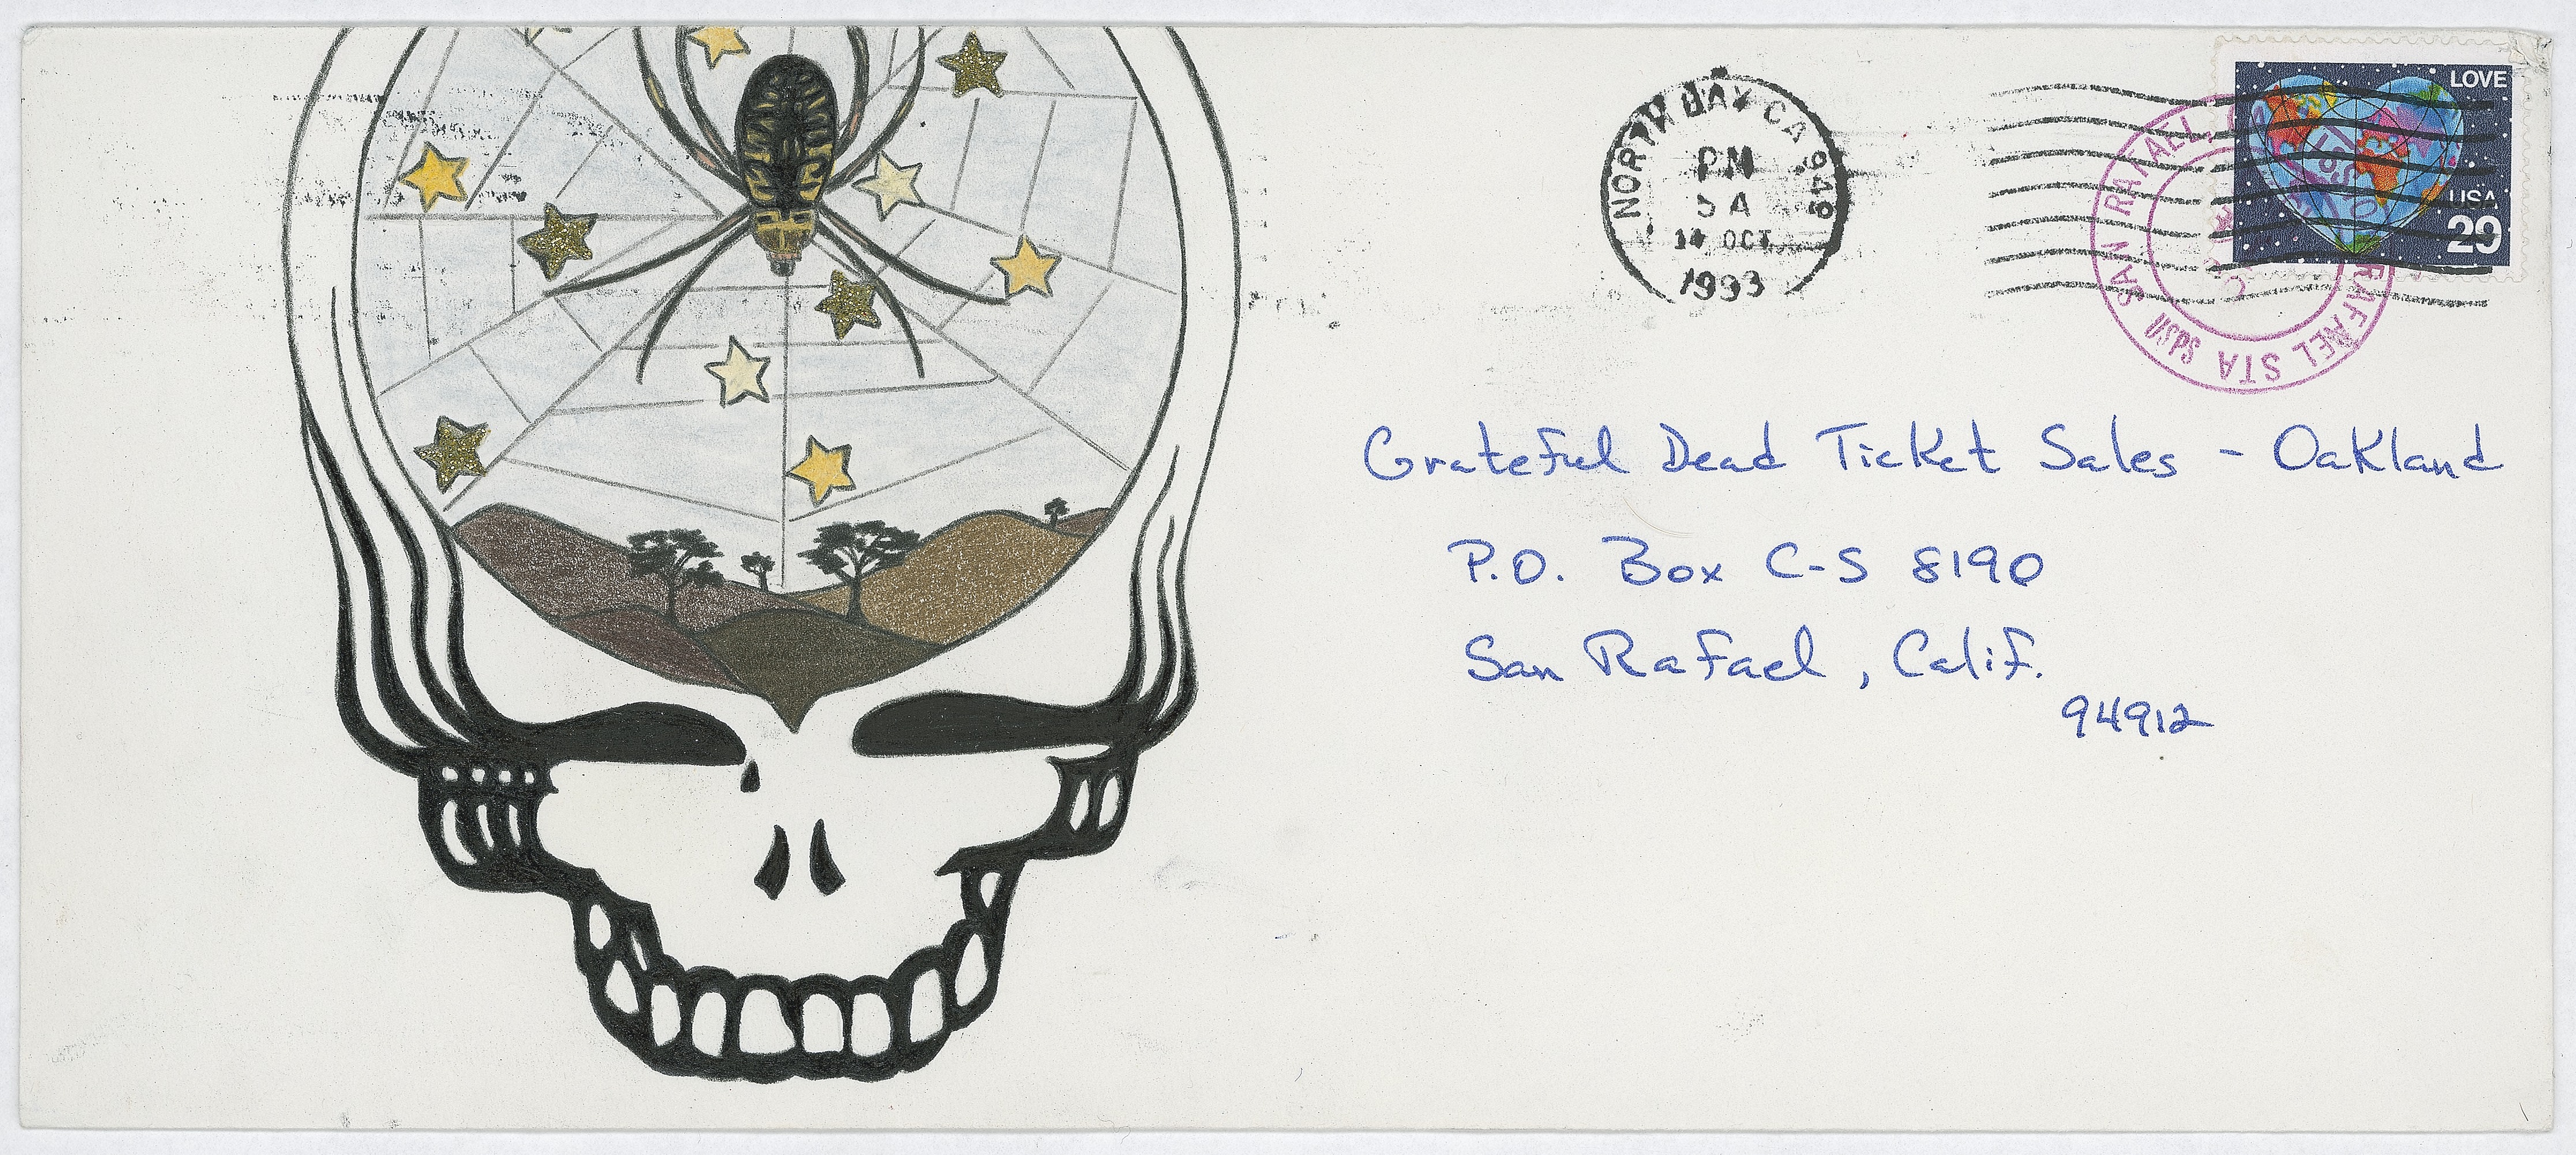 NORTH BAY CA 949
PM
14 OCT
1993
LOVE
USA
29
SAN RAFAEL
SAN RAFAEL STA
USPS
Grateful Dead Ticket Sales - Oakland
P.O. Box C-S 8190
San Rafael, Calif.
94912